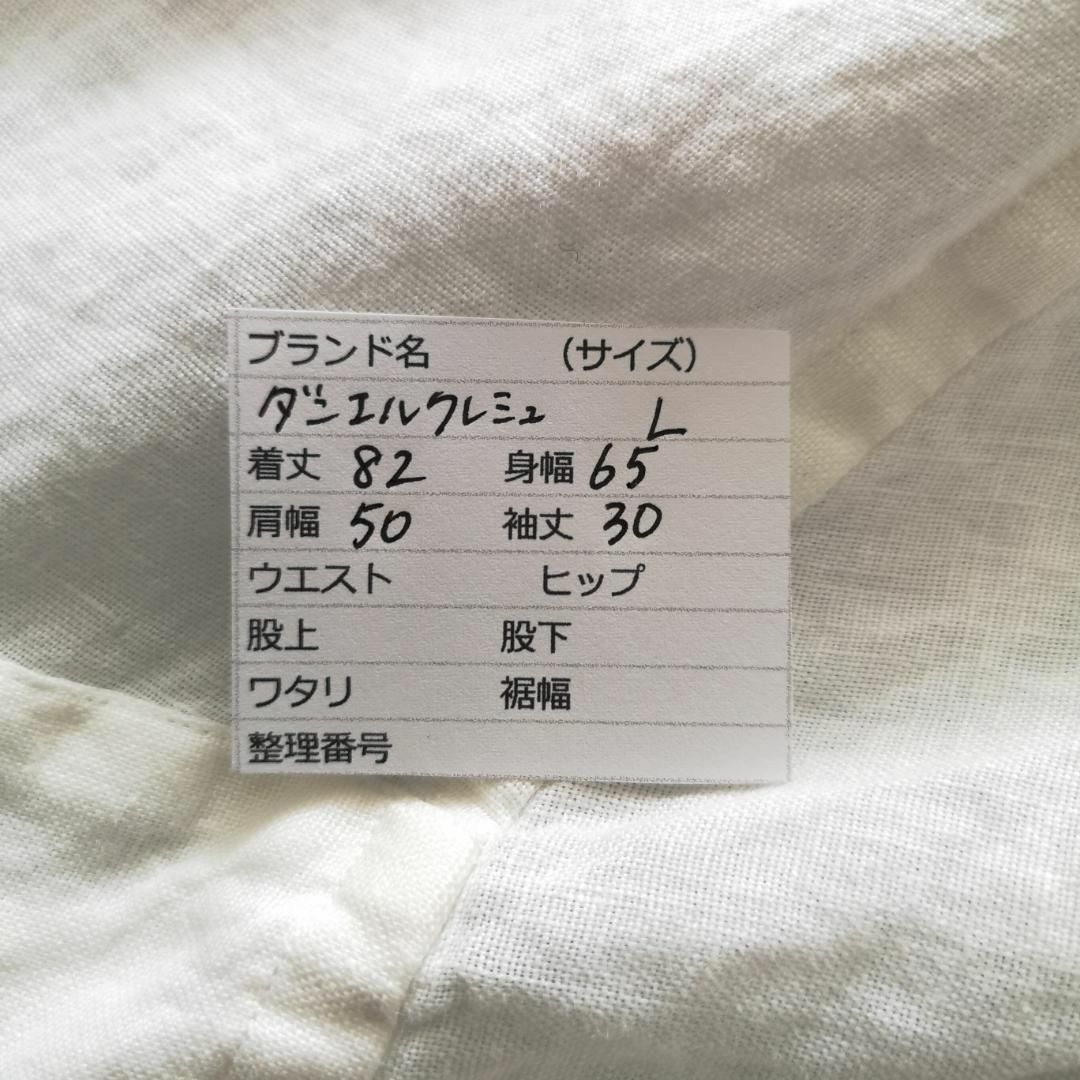 ブランド名 （サイズ）
ダニエルクレミュ L
着丈 82 身幅 65
肩幅 50 袖丈 30
ウエスト ヒップ
股上 股下
ワタリ 裾幅
整理番号